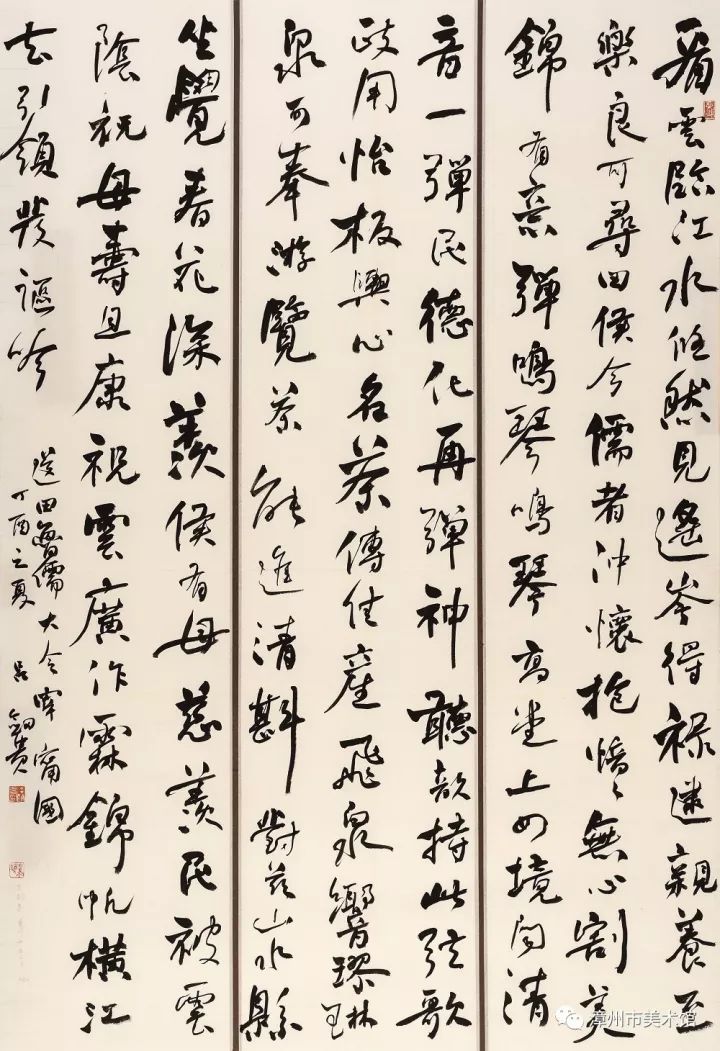 看雲臨江水悠然見遙岑得祿逮親養至
樂良可尋田侯今儒者沖懷抱愔愔無心割美
錦有意彈鳴琴鳴琴高堂上四境聞清
音一彈民德化再彈神聽歆持此弦歌
政用怡板輿心名茶傳佳產飛泉響璆琳
泉可奉游覽茶能進清斟對茲山水縣
坐覺春花深羨侯有母慈羨民被雲
陰祝母壽且康祝雲廣作霖錦帆橫江
去引領發謳吟
送田魯儒大令宰甯國
丁酉之夏 呂
漳州市美术馆